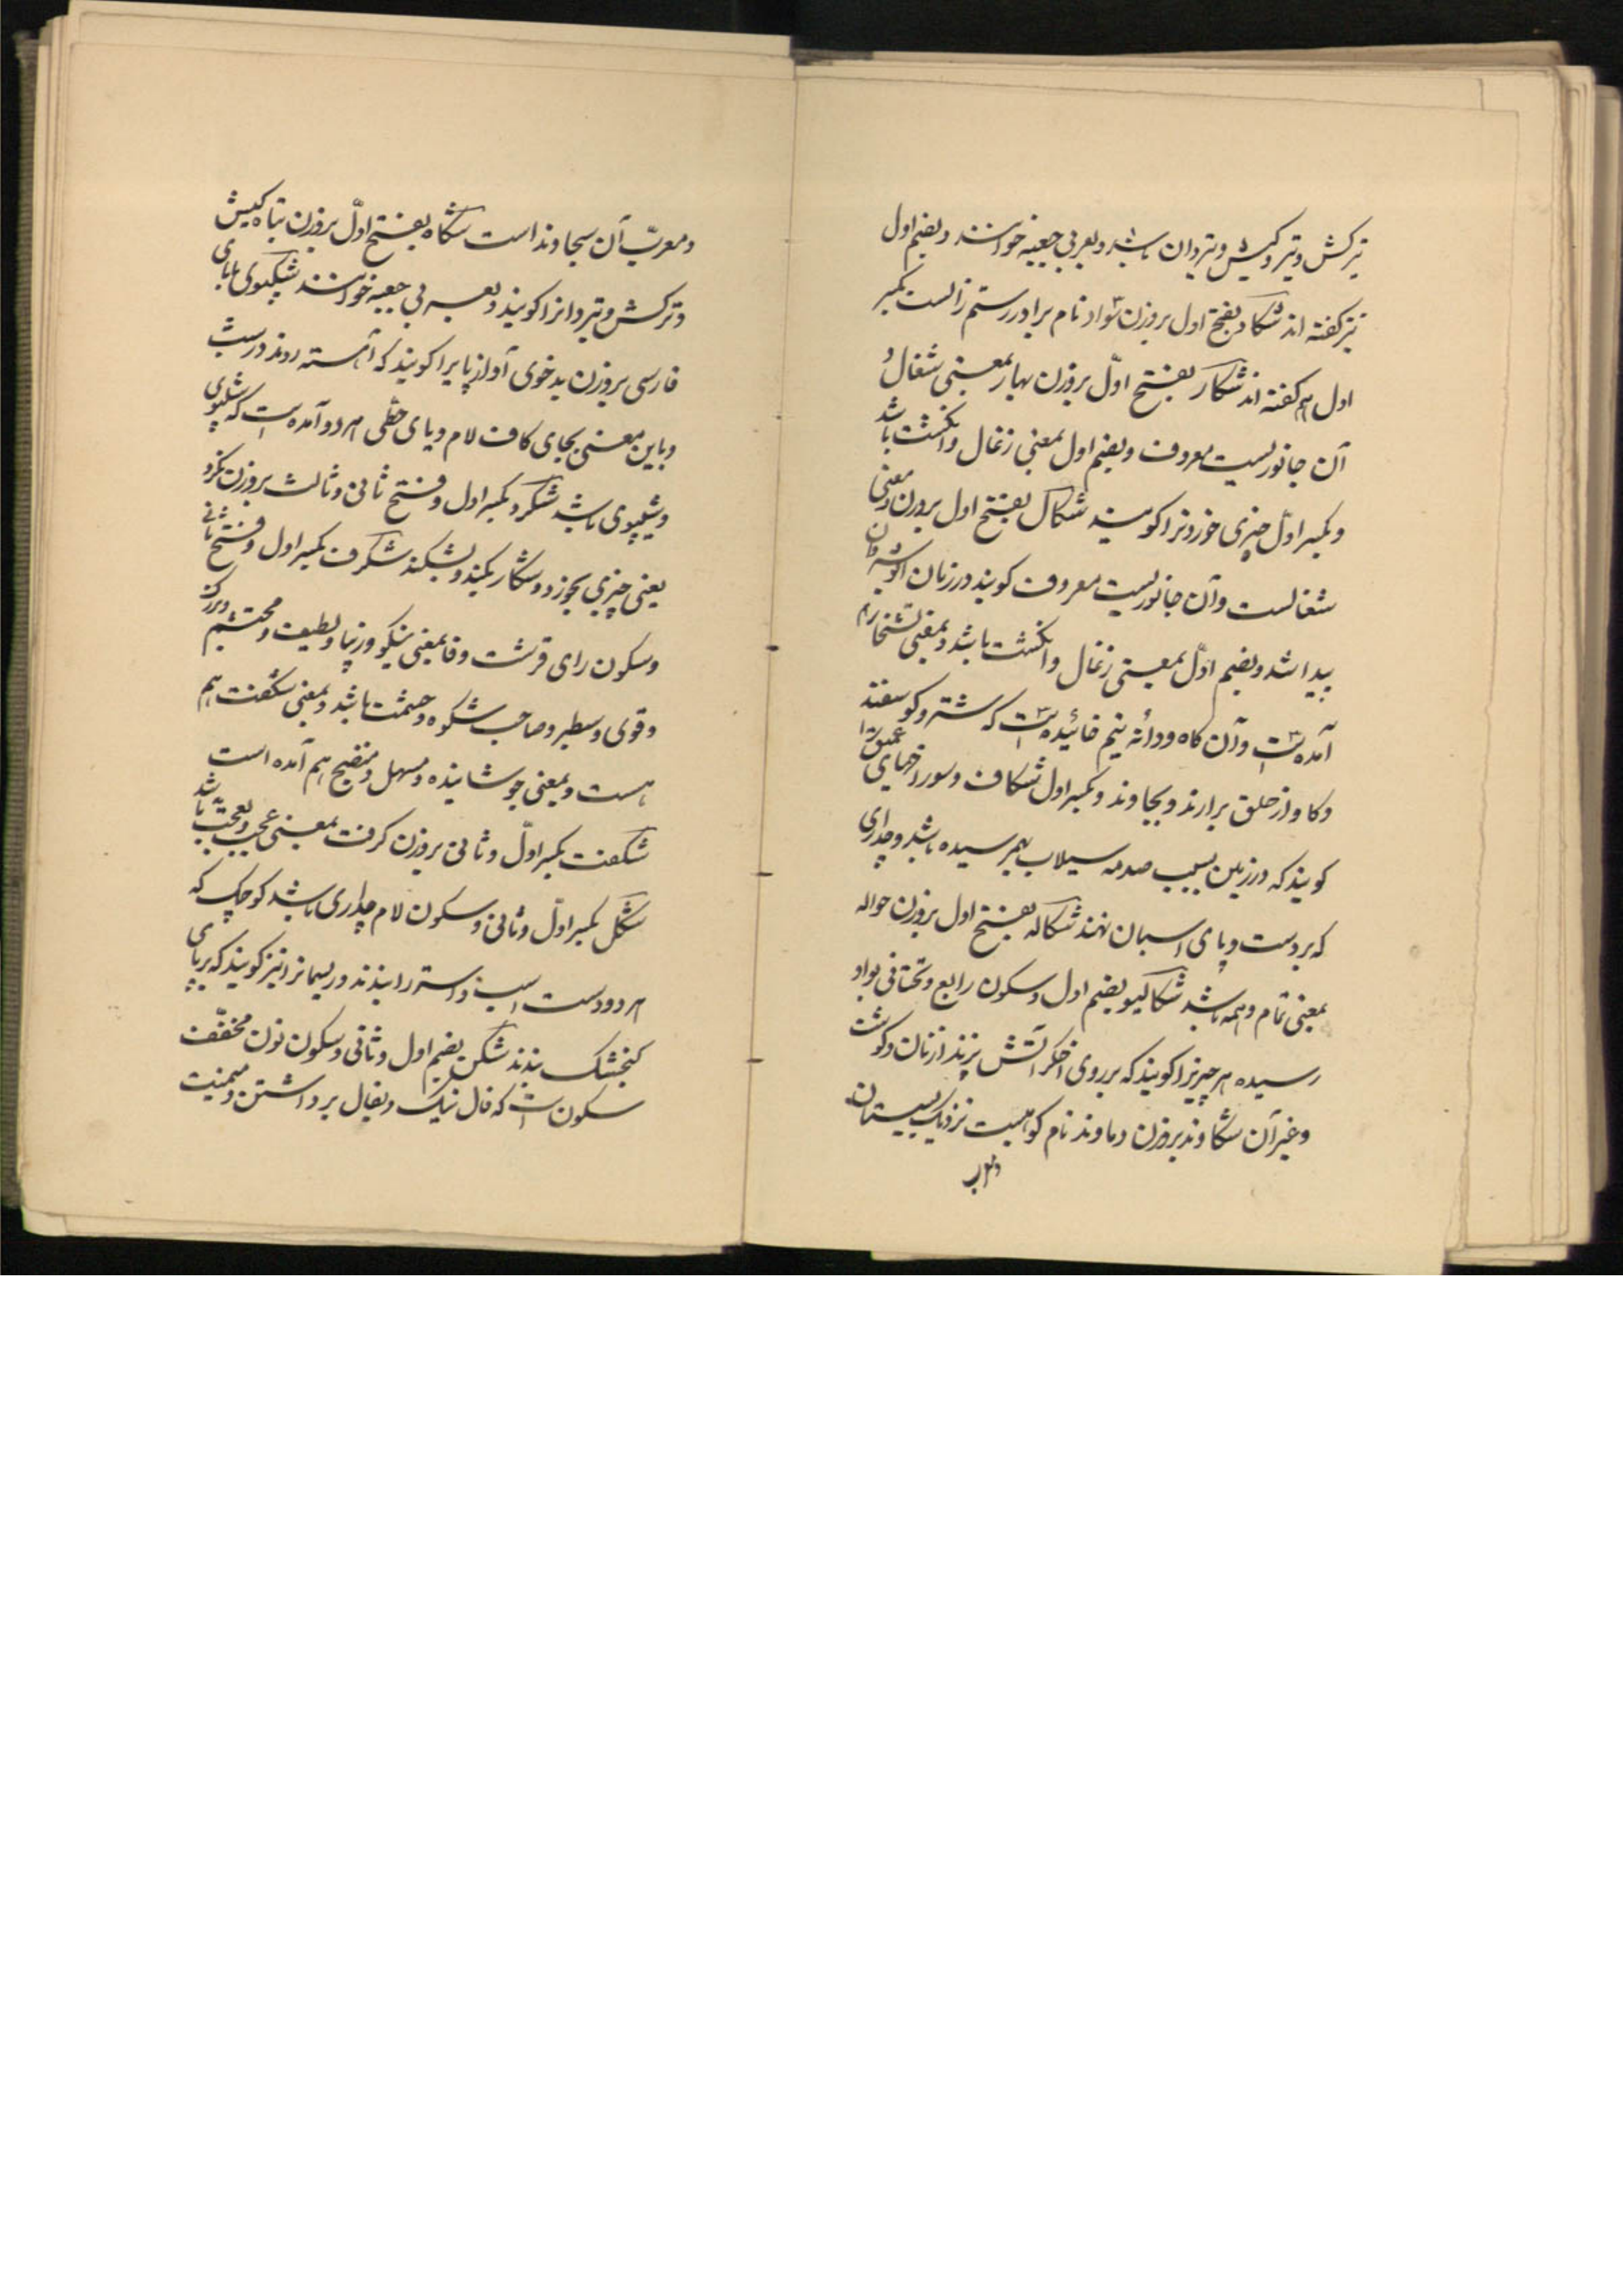 ترکش و تیر و کیش و تیردان باشد و بعربی جعبه خوانند و بضم اول
نیز گفته اند شکاد بفتح اول بروزن سواد نام برادر رستم زالست بکسر
اول هم گفته اند شکار بفتح اوّل بروزن بهار بمعنی شغال و
آن جانوریست معروف و بضم اول بمعنی زغال و انکشت باشد
و بکسر اوّل چیزی خوردنرا کویند شکال بفتح اول بروزن و معنی
شغالست و آن جانوریست معروف کویند در زمان انوشیروان
پیدا شد و بضم اوّل بمعنی زغال و انکشت باشد و بمعنی نشخار هم
آمده است و آن کاه و دانه نیم خائیده است که شتر و کوسفند
و کاو از حلق برارند و بجاوند و بکسر اول شکاف و سوراخهای عمیق را
کویند که در زمین بسبب صدمه سیلاب بهم رسیده باشد و چداری
که بر دست و پای اسبان نهند شکاله بفتح اول بروزن حواله
بمعنی تمام و همه باشد شکالیو بضم اول و سکون رابع و تحتانی بواو
رسیده هر چیز را کویند که بر روی اخکر آتش پزند از نان و کوشت
و غیر آن شکاوند بروزن دماوند نام کوهیست نزدیک بسیستان
و معرب
و معرّب آن سجاوند است شکاه بفتح اوّل بروزن تباه کیش
و ترکش و تیردانرا کویند و بعربی جعبه خوانند شکپوی بابای
فارسی بروزن بدخوی آواز پایرا کویند که آهسته روند در شب
و باین معنی بجای کاف لام و یای حطّی هر دو آمده است که شلپوی
و شیپوی باشد شکرد بکسر اول و فتح ثانی و ثالث بروزن نکرد
یعنی چیزی بخورد و شکار بکند و بشکند شکرف بکسر اول و فتح ثانی
و سکون رای قرشت و فا بمعنی نیکو و زیبا و لطیف و محتشم و بزرک
و قوی و سطبر و صاحب شکوه و حشمت باشد و بمعنی شکفت هم
هست و بمعنی جوشانیده و مسهل و منضج هم آمده است
شکفت بکسر اوّل و ثانی بروزن کرفت بمعنی عجب و تعجب باشد
شکل بکسر اوّل و ثانی و سکون لام چداری باشد کوچک که
هر دو دست اسب و استر را بندند و ریسمانرا نیز کویند که بر پای
کنجشک بندند شکن بضم اول و ثانی و سکون نون مخفّف
سکون است که فال نیک و بفال برداشتن و میمنت